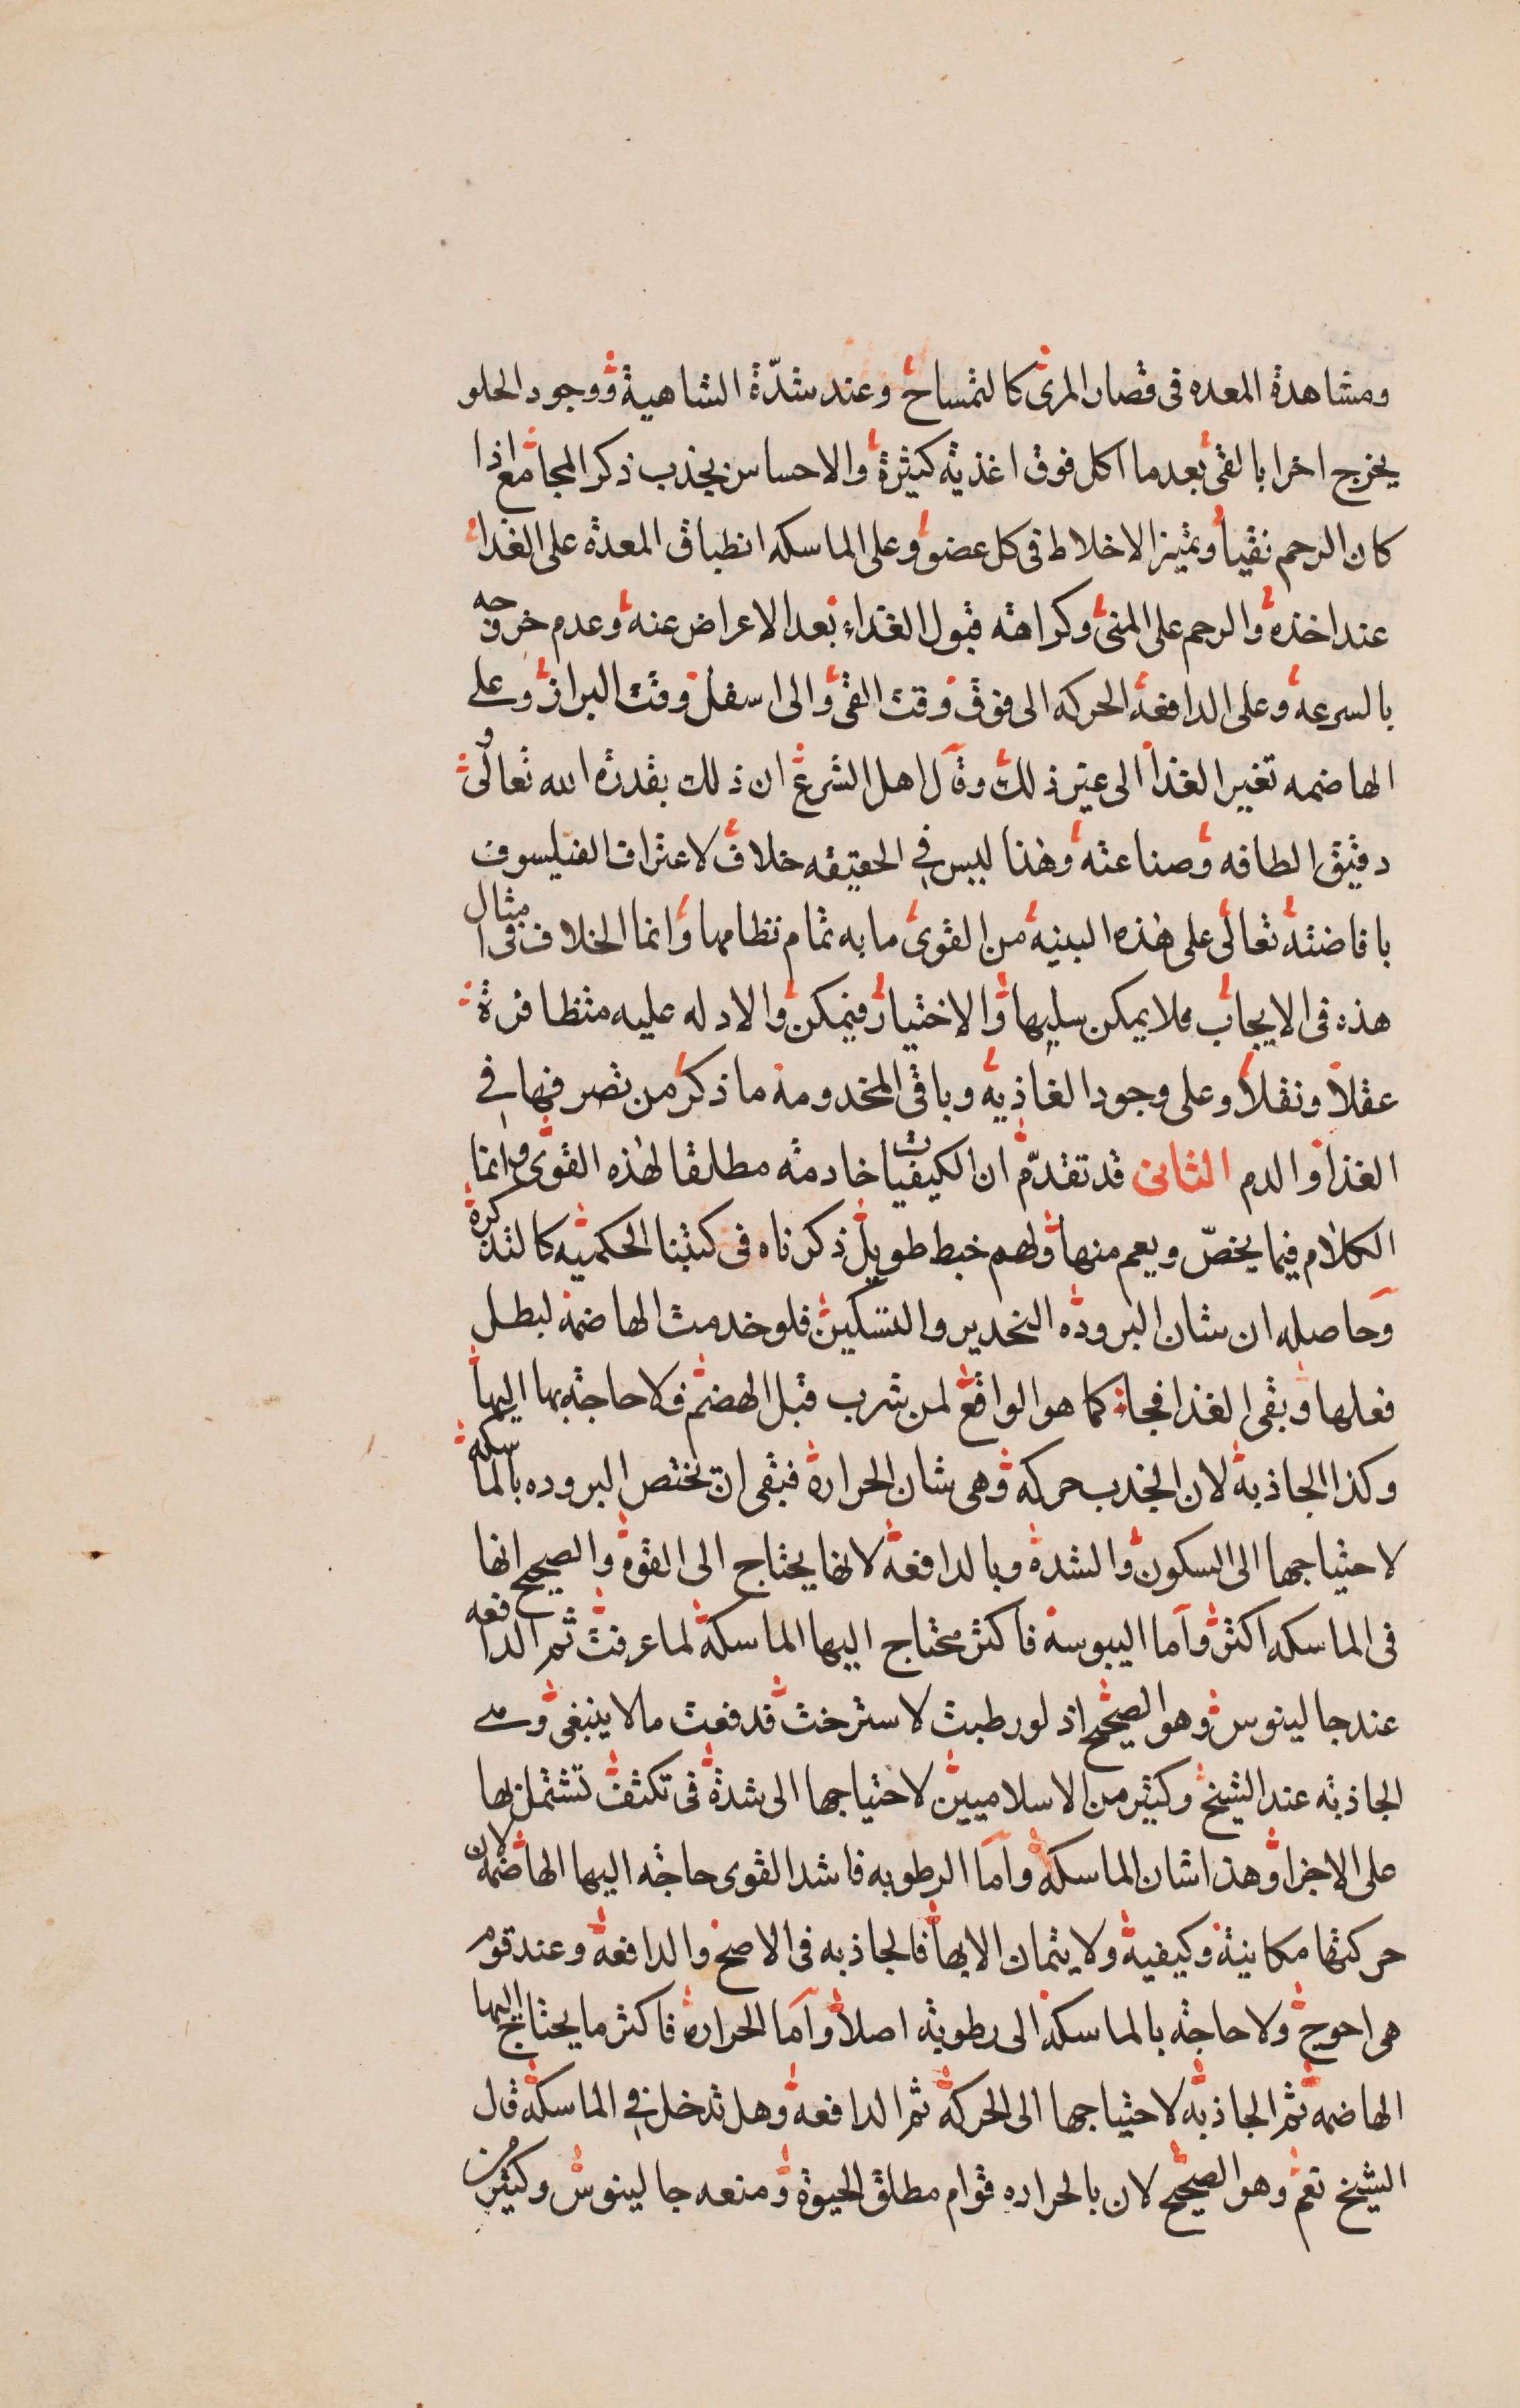 ومشاهدة المعده فى قصار المرئ كالتمساح وعند شدّة الشاهية ووجود الحلو
يخرج اخرا بالقى بعد ما اكل فوق اغذيه كثيرة والاحساس بجذب ذكر المجامع اذا
كان الرحم نقيا وتميز الاخلاط فى كل عضو وعلى الماسكه انطباق المعدة على الغدا
عند اخذه والرحم على المنى وكراهته قبول الغذاء بعد الاعراض عنه وعدم خروجه
بالسرعه وعلى الدافعه الحركه الى فوق وقت القى والى اسفل وقت البراز وعلى
الهاضمه تغيير الغذا الى غير ذلك وقال اهل الشرع ان ذلك بقدرة الله تعالى و
دقيق الطافه وصناعته وهذا ليس في الحقيقه خلاف لاعتراف الفيلسوف
بافاضته تعالى على هذه البنيه من القوى ما به تمام نظامها وانما الخلاف فى امثال
هذه فى الايجاب فلا يمكن سلبها والاختيار فيمكن والادله عليه متظافرة
عقلا ونقلا وعلى وجود الغاذيه وباقى المخدومة ما ذكر من تصرفها في
الغذا والدم الثانى قد تقدّم ان الكيفيات خادمته مطلقا لهذه القوى وانما
الكلام فيما يخصّ ويعم منها ولهم خبط طويل ذكرناه فى كتبنا الحكميه كالتذكرة
وحاصله ان شان البروده التخدير والتسكين فلو خدمت الهاضمة لبطل
فعلها وبقى الغذا فجاة كما هو الواقع لمن شرب قبل الهضم فلا حاجة بها اليها
وكذا الجاذبة لان الجذب حركه وهى شان الحرارة فبقى ان تختص البروده بالماسكه
لاحتياجها الى السكون والشدة وبالدافعه لانها يحتاج الى القوة والصحيح انها
فى الماسكه اكثر واما اليبوسة فاكثر محتاج اليها الماسكة لما عرفت ثم الدافعه
عند جالينوس وهو الصحيح اذ لو رطبت لاسترخت فدفعت مالا ينبغى و
الجاذبه عند الشيخ وكثير من الاسلاميين لاحتياجها الى شدة فى تكثف تشتمل بها
على الاجزا وهذا شان الماسكة واما الرطوبه فاشد القوى حاجه اليها الهاضمة لان
حركتها مكانية وكيفية ولا يتمان الا بها فالجاذبه فى الاصح والدافعه وعند قوم
هى احوج ولا حاجة بالماسكة الى رطوبة اصلا واما الحرارة فاكثر ما يحتاج اليها
الهاضمه ثم الجاذبة لاحتياجها الى الحركة ثم الدافعه وهل تدخل في الماسكه قال
الشيخ نعم وهو الصحيح لان بالحراره قوام مطلق الحيوة ومنعه جالينوس وكثير من